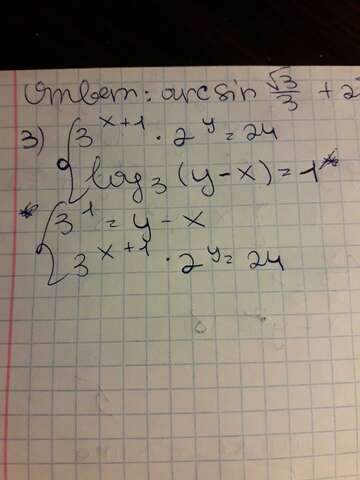 Ответ: arcsin √3/3 + 2
3) { 3^{x+1} · 2^y = 24
log₃ (y-x) = 1
{ 3^1 = y - x
3^{x+1} · 2^y = 24